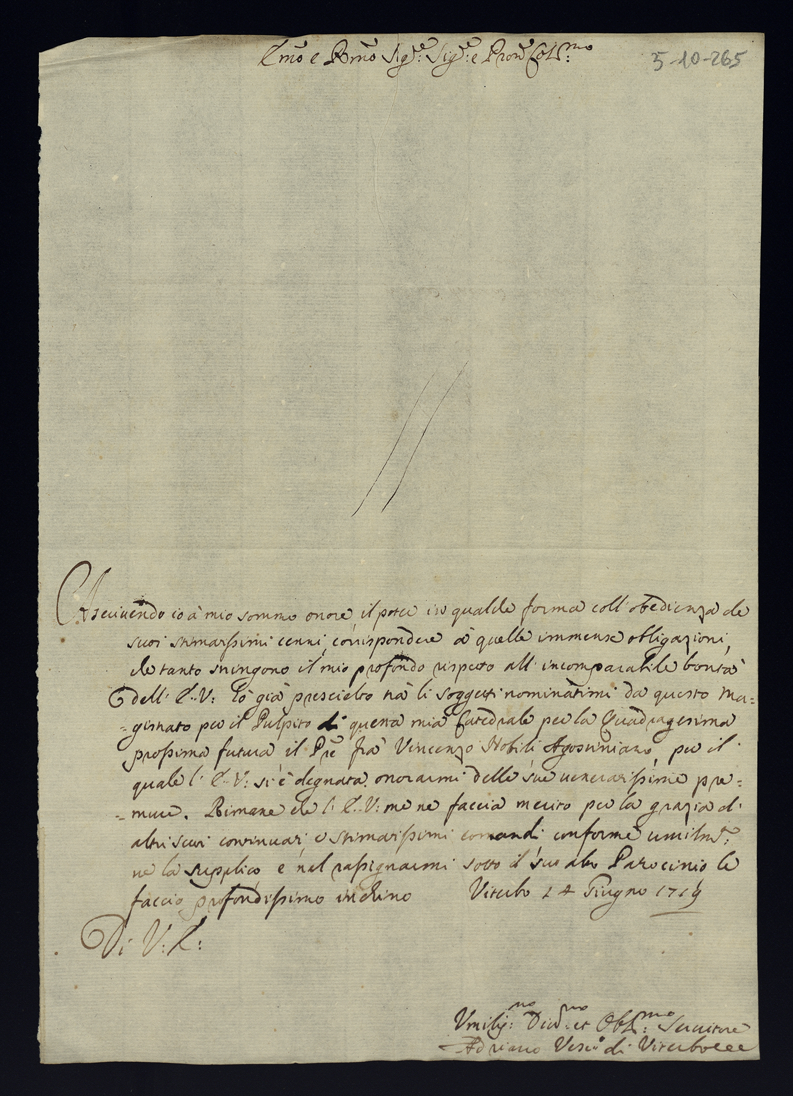 Em̃o e Rmõ Sig.re Sig.re e Pron Col.mo
5-10-265
Ascrivendo io à mio sommo onore, il poter in qualche forma coll'obedienza de
suoi stimatissimi cenni, corrispondere à quelle immense obligazioni,
che tanto stringono il mio profondo rispetto all'incomparabile bontà
dell'E.V: hò già prescielto trà li soggetti nominatimi da questo Ma=
=gistrato per il Pulpito di questa mia Catedrale per la Quadragesima
prossima futura il Pre Frà Vincenzo Nobili Agostiniano, per il
quale l'E.V: si è degnata onorarmi delle sue veneratissime pre=
=mure. Rimane che l'E.V: me ne faccia merito per la grazia di
altri suoi continuati e stimatissimi comandi conforme umilmte:
ne la supplico, e nel rassegnarmi sotto il suo alto Patrocinio le
faccio profondissimo inchino Viterbo 24 Giugno 1719
Di V: E:
Vmiliss:mo Div:mo et Obl:mo Servitore
Adriano Vesco di Viterbo